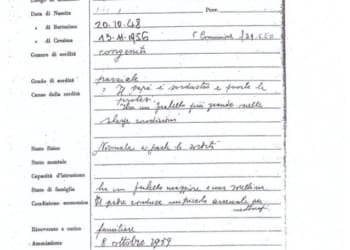 Data di Nascita
Prov.
" di Battesimo 20.10.48
" di Cresima 13-11-1956
Genere di sordità congenita
Grado di sordità parziale
Causa della sordità ? Il papà è sordastro e porta la
protesi
ha un fratello più grande nelle
stesse condizioni
Stato fisico Normale a parte la sordità
Stato mentale
Capacità d'istruzione
Stato di famiglia ha un fratello maggiore e una sorellina
Condizione economica Il padre conduce un piccolo arsenale per
Ricoverato a carico familiare
Ammissione 8 ottobre 1959